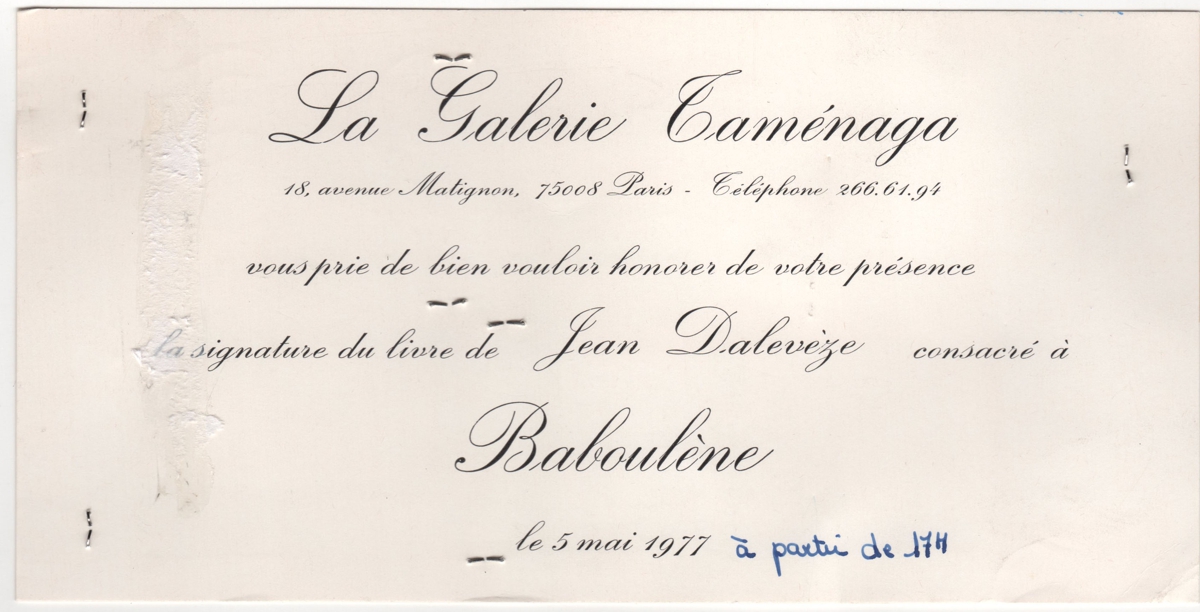 La Galerie Taménaga
18, avenue Matignon, 75008 Paris - Téléphone 266.61.94
vous prie de bien vouloir honorer de votre présence
la signature du livre de Jean Dalevèze consacré à
Baboulène
le 5 mai 1977 à partir de 17H